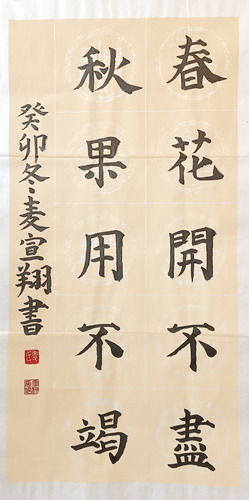 春花開不盡
秋果用不竭
癸卯冬麦宣翔書